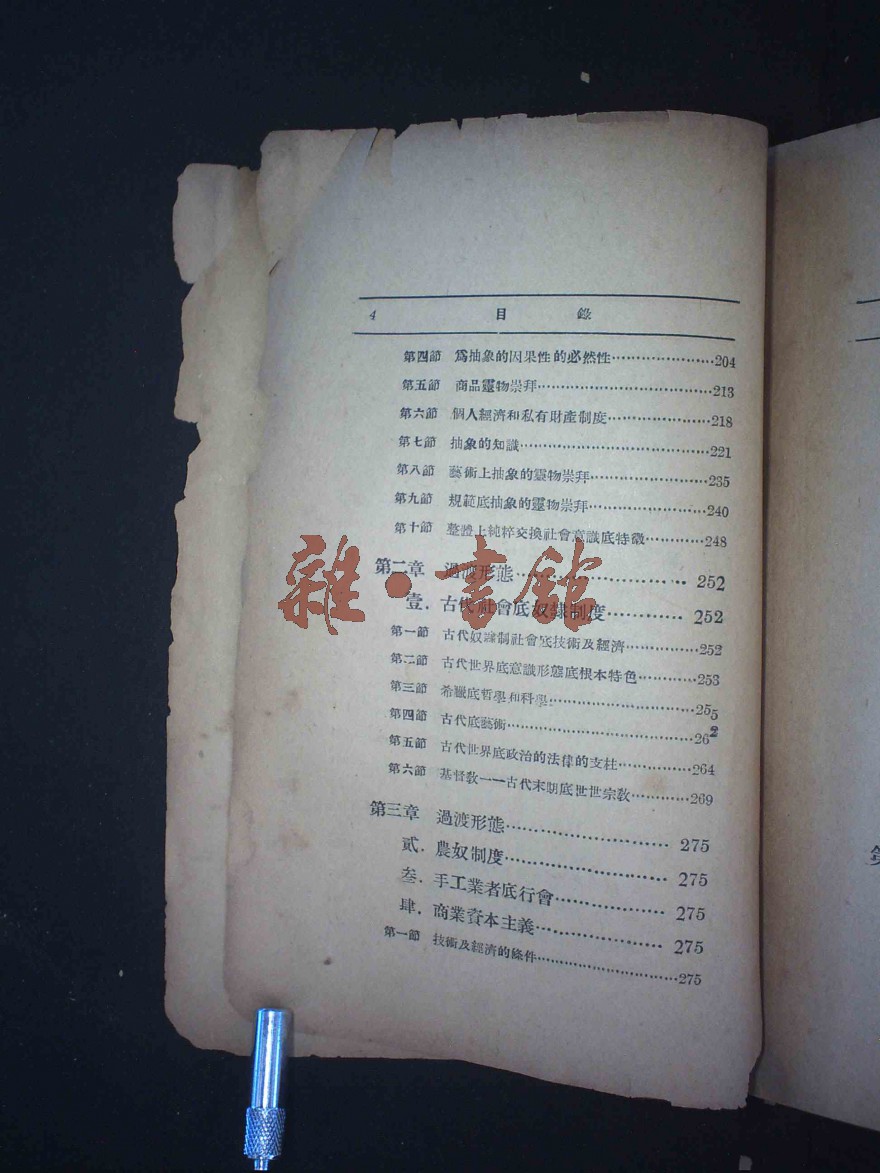 4 目 錄
第四節 爲抽象的因果性的必然性……………………204
第五節 商品靈物崇拜……………………213
第六節 個人經濟和私有財產制度……………………218
第七節 抽象的知識……………………221
第八節 藝術上抽象的靈物崇拜……………………235
第九節 規範底抽象的靈物崇拜……………………240
第十節 整體上純粹交換社會意識底特徵……………248
雜·書館
第二章 過渡形態……………………252
壹．古代社會底奴隸制度……………252
第一節 古代奴隸制社會底技術及經濟……………252
第二節 古代世界底意識形態底根本特色……………253
第三節 希臘底哲學和科學……………………255
第四節 古代底藝術……………………262
第五節 古代世界底政治的法律的支柱……………264
第六節 基督教——古代末期底世世宗教……………269
第三章 過渡形態……………………275
貳．農奴制度……………………275
叁．手工業者底行會……………………275
肆．商業資本主義……………………275
第一節 技術及經濟的條件……………………275